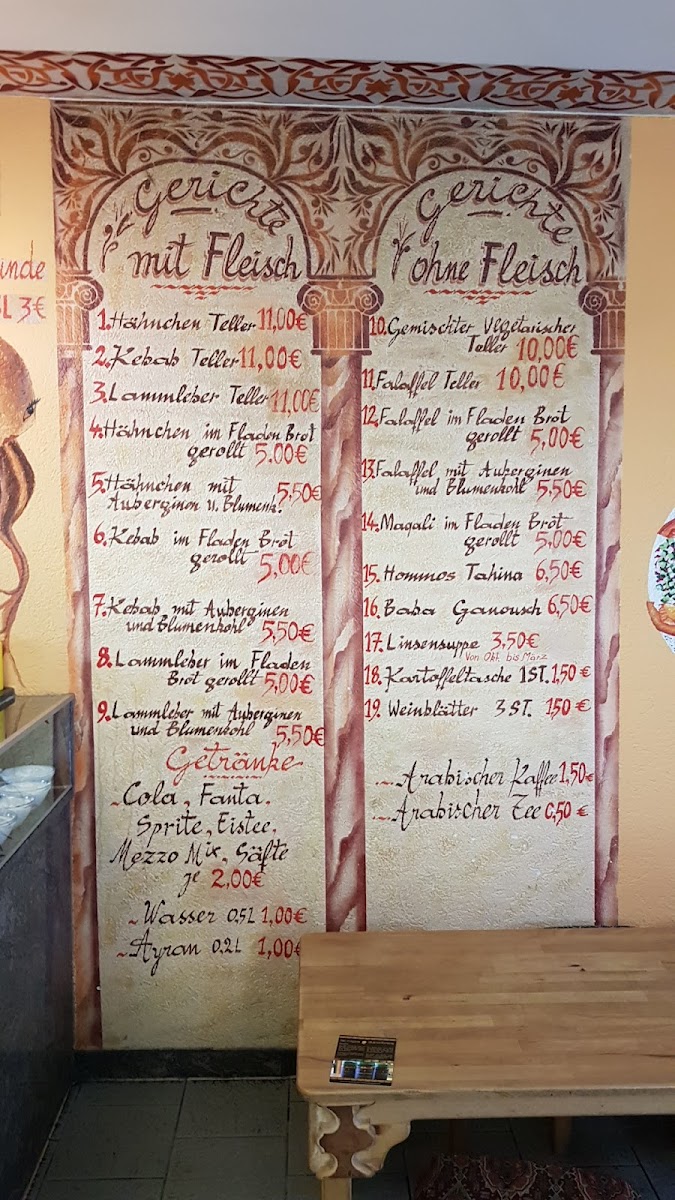 inde
3€
Gerichte
mit Fleisch
1. Hähnchen Teller 11,00€
2. Kebab Teller 11,00€
3. Lammleber Teller 11,00€
4. Hähnchen im Fladen Bröt
gerollt 5.00€
5. Hähnchen mit 5,50€
Auberginen u. Blumenk!
6. Kebab im Fladen Bröt
gerollt 5,00€
7. Kebab mit Auberginen
und Blumenkohl 5,50€
8. Lammleber im Fladen
Bröt gerollt 5,00€
9. Lammleber mit Auberginen
und Blumenkohl 5,50€
Getränke
~Cola, Fanta.
Sprite, Eistee.
Mezzo Mix, Säfte
je 2,00€
~Wasser 0.5L 1,00€
~Ayran 0.2L 1,00€
Gerichte
ohne Fleisch
10. Gemischter Vegetarischer
Teller 10,00€
11. Falaffel Teller 10,00€
12. Falaffel im Fladen Bröt
gerollt 5,00€
13. Falaffel mit Auberginen
und Blumenkohl 5,50€
14. Maqali im Fladen Bröt
gerollt 5,00€
15. Hommos Tahina 6,50€
16. Baba Ganousch 6,50€
17. Linsensuppe 3,50€
Von Okt. bis März
18. Kartoffeltasche 1ST. 1,50€
19. Weinblätter 3 ST. 1,50€
Arabischer Kaffee 1,50€
Arabischer Tee 0,50€